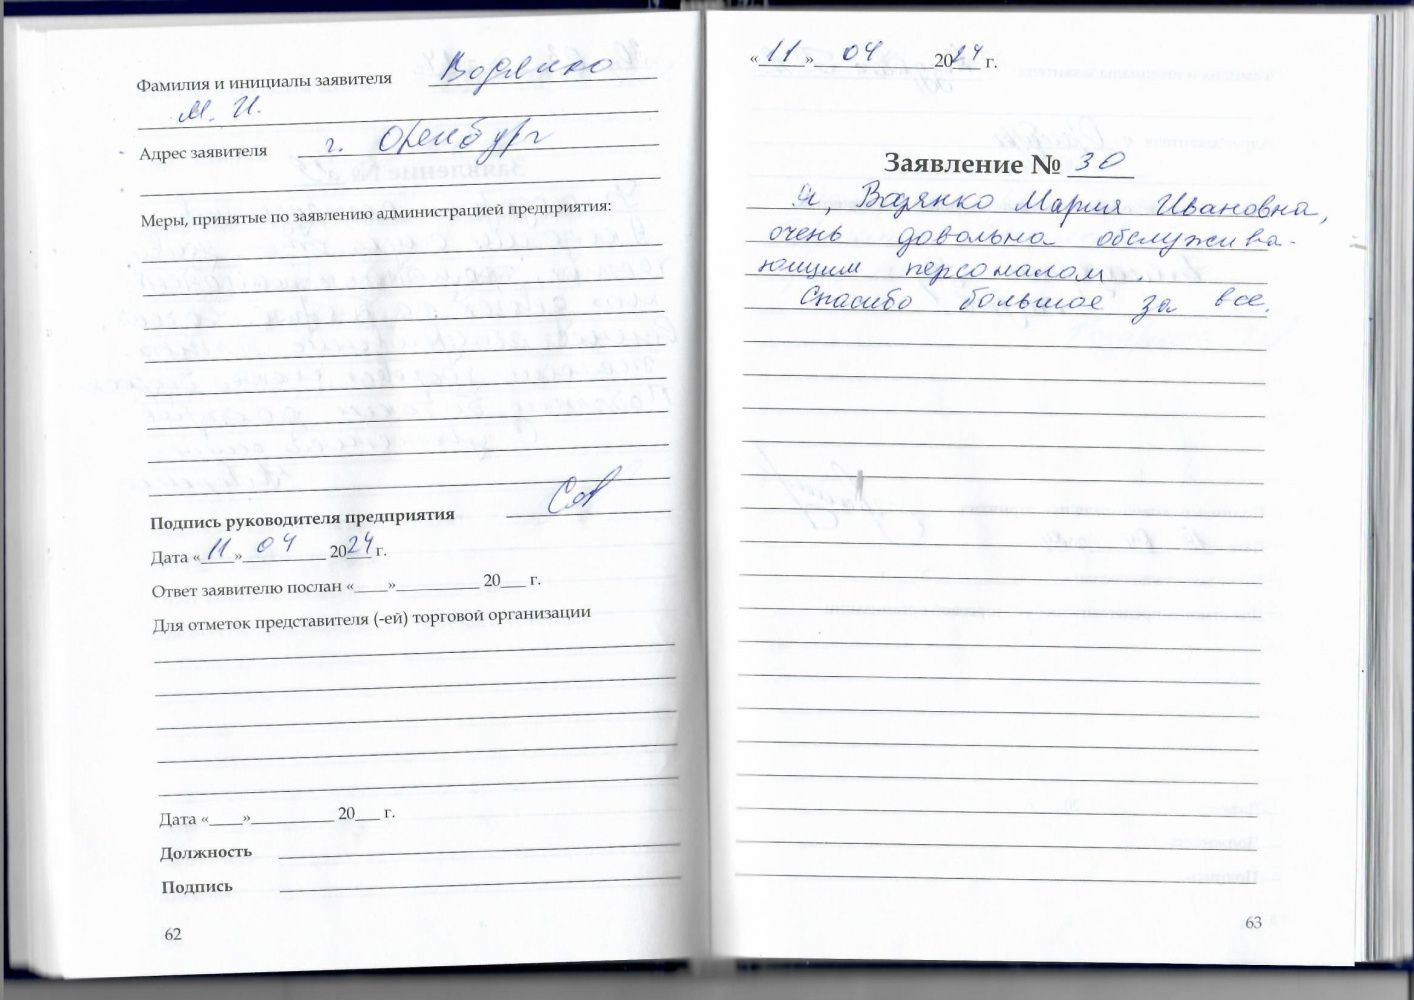 Фамилия и инициалы заявителя Водянко
М. И.
Адрес заявителя г. Оренбург
Меры, принятые по заявлению администрацией предприятия:
Подпись руководителя предприятия
Дата «11» 04 2024 г.
Ответ заявителю послан «____»__________ 20___ г.
Для отметок представителя (-ей) торговой организации
Дата «____»__________ 20___ г.
Должность
Подпись
62
«11» 04 2024 г.
Заявление № 30
Я, Водянко Мария Ивановна,
очень довольна обслужива-
ющим персоналом.
Спасибо большое за все.
63